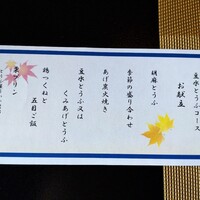 豆水とうふコース
お献立
胡麻とうふ
季節の盛り合わせ
あげ炭火焼き
豆水とうふ又は
くみあげとうふ
鶏つくねと
五目ご飯
プリン